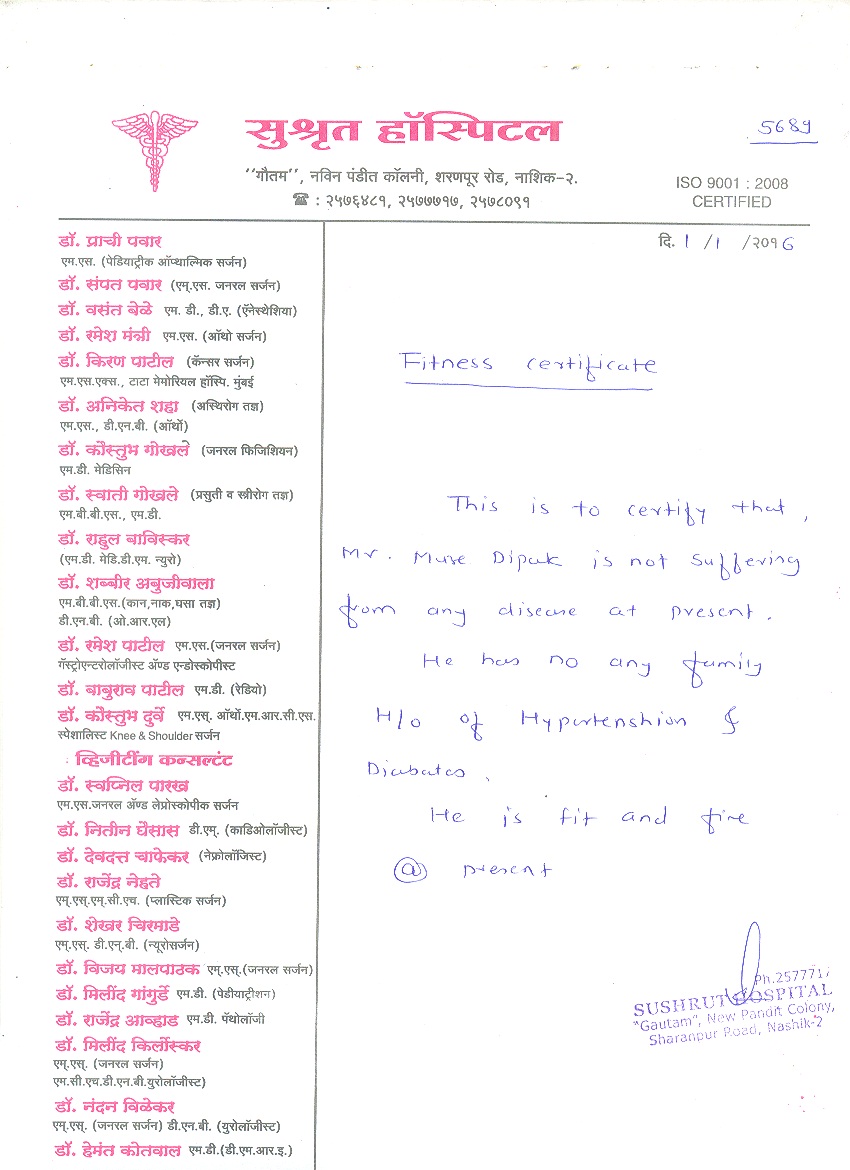 सुश्रृत हॉस्पिटल
5689
"गौतम", नविन पंडीत कॉलनी, शरणपूर रोड, नाशिक-२.
☎ : २५७६४८१, २५७७७१७, २५७८०९१
ISO 9001 : 2008
CERTIFIED
दि. 1 /1 /२०१6
डॉ. प्राची पवार
एम.एस. (पेडियाट्रीक ऑप्थाल्मिक सर्जन)
डॉ. संपत पवार (एम्.एस. जनरल सर्जन)
डॉ. वसंत बेळे एम. डी., डी.ए. (ऍनेस्थेशिया)
डॉ. रमेश मंत्री एम.एस. (ऑर्थो सर्जन)
डॉ. किरण पाटील (कॅन्सर सर्जन)
एम.एस.एक्स., टाटा मेमोरियल हॉस्पि. मुंबई
डॉ. अनिकेत शहा (अस्थिरोग तज्ञ)
एम.एस., डी.एन.बी. (ऑर्थो)
डॉ. कौस्तुभ गोखले (जनरल फिजिशियन)
एम.डी. मेडिसिन
डॉ. स्वाती गोखले (प्रसुती व स्त्रीरोग तज्ञ)
एम.बी.बी.एस., एम.डी.
डॉ. राहुल बाविस्कर
(एम.डी. मेडि.डी.एम. न्युरो)
डॉ. शब्बीर अबुजीवाला
एम.बी.बी.एस.(कान,नाक,घसा तज्ञ)
डी.एन.बी. (ओ.आर.एल)
डॉ. रमेश पाटील एम.एस.(जनरल सर्जन)
गॅस्ट्रोएन्टरोलॉजीस्ट अ‍ॅण्ड एन्डोस्कोपीस्ट
डॉ. बाबुराव पाटील एम.डी. (रेडियो)
डॉ. कौस्तुभ दुर्वे एम.एस्. ऑर्थो.एम.आर.सी.एस.
स्पेशालिस्ट Knee & Shoulder सर्जन
व्हिजीटींग कन्सल्टंट
डॉ. स्वप्निल पारख
एम.एस.जनरल अ‍ॅण्ड लेप्रोस्कोपीक सर्जन
डॉ. नितीन घैसास डी.एम्. (कार्डिओलॉजीस्ट)
डॉ. देवदत्त चाफेकर (नेफ्रोलॉजिस्ट)
डॉ. राजेंद्र नेहते
एम्.एस्.एम्.सी.एच. (प्लास्टिक सर्जन)
डॉ. शेखर चिरमाडे
एम्.एस्. डी.एन्.बी. (न्यूरोसर्जन)
डॉ. विजय मालपाठक एम्.एस्.(जनरल सर्जन)
डॉ. मिलींद गांगुर्डे एम.डी. (पेडीयाट्रीशन)
डॉ. राजेंद्र आव्हाड एम.डी. पॅथोलॉजी
डॉ. मिलींद किर्लोस्कर
एम्.एस्. (जनरल सर्जन)
एम.सी.एच.डी.एन.बी.युरोलॉजीस्ट)
डॉ. नंदन विळेकर
एम्.एस्. (जनरल सर्जन) डी.एन.बी. (युरोलॉजीस्ट)
डॉ. हेमंत कोतवाल एम.डी.(डी.एम.आर.इ.)
Fitness certificate
This is to certify that,
Mr. Mure Dipak is not suffering
from any disease at present.
He has no any family
H/o of Hypertenshion &
Diabates.
He is fit and fine
@ present
Ph.2577717
SUSHRUT HOSPITAL
"Gautam", New Pandit Colony,
Sharanpur Road, Nashik-2